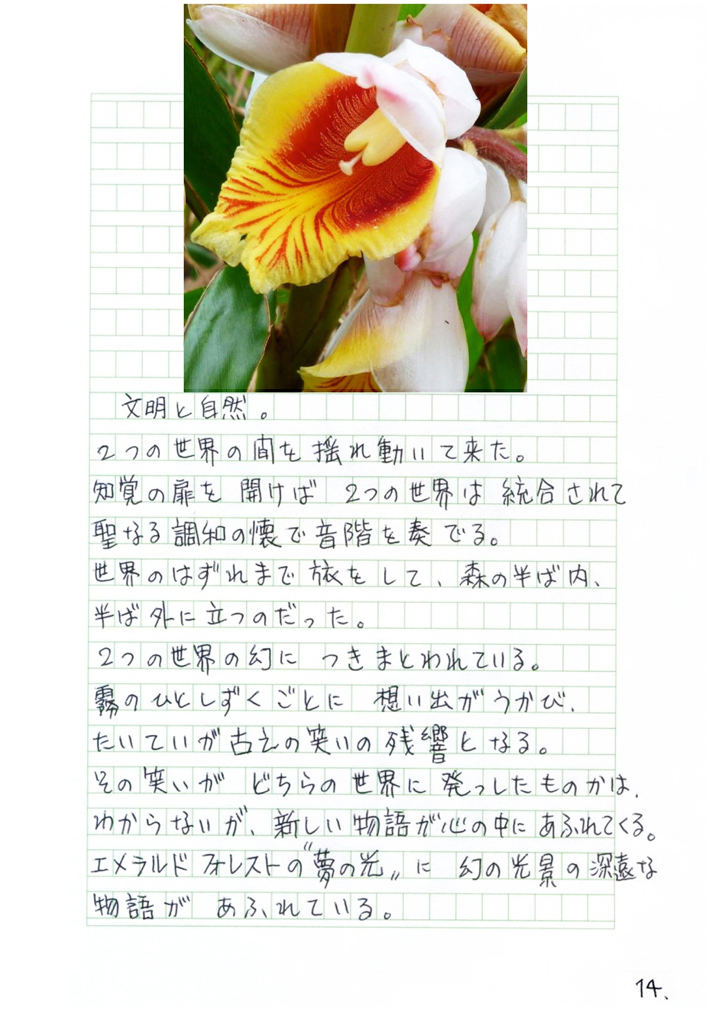 文明と自然。
2つの世界の間を揺れ動いて来た。
知覚の扉を開けば 2つの世界は 統合されて
聖なる調和の懐で音階を奏でる。
世界のはずれまで旅をして、森の半ば内、
半ば外に立つのだった。
2つの世界の幻に つきまとわれている。
霧のひとしずくごとに 想い出がうかび、
たいていが古えの笑いの残響となる。
その笑いが どちらの世界に発っしたものかは、
わからないが、新しい物語が心の中にあふれてくる。
エメラルドフォレストの"夢の光"に 幻の光景の深遠な
物語が あふれている。
14、